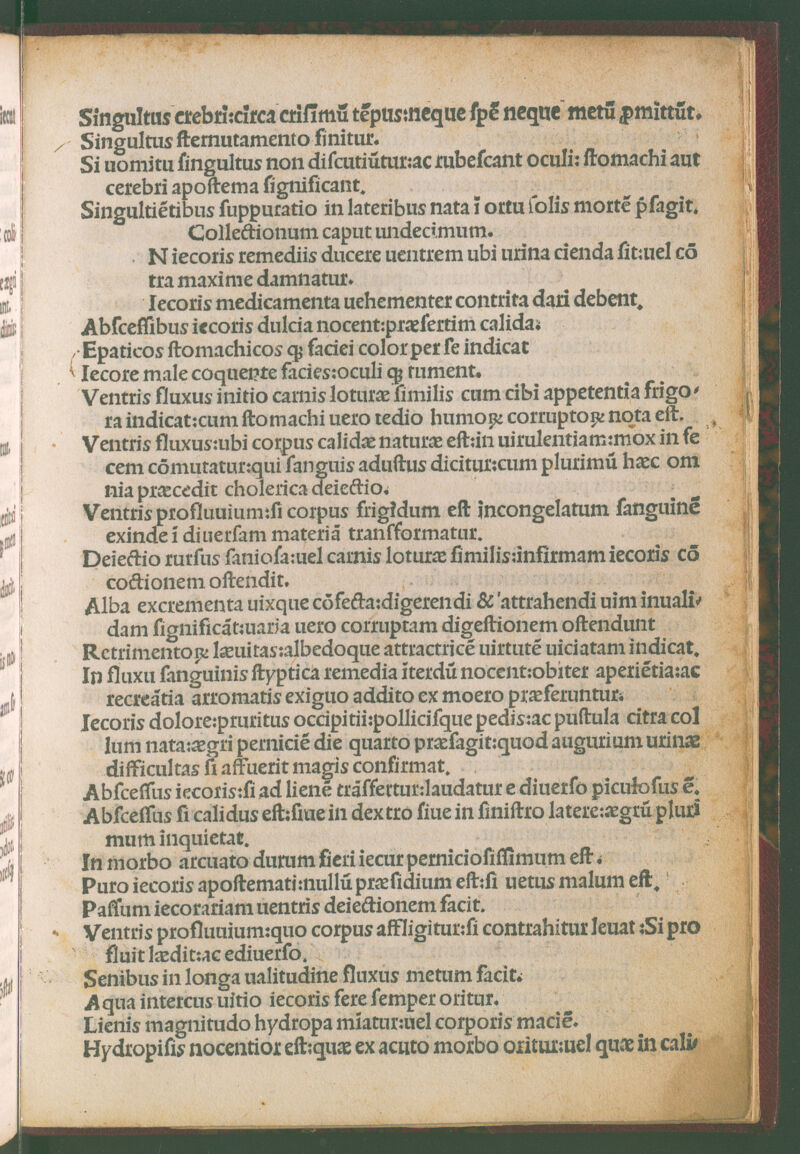 Singultus crebri:circa crisimū tēpus:neque spē neque metū ꝓmittūt.
Singultus sternutamento finitur.
Si uomitu singultus non discutiūtur:ac rubescant oculi: stomachi aut
cerebri apostema significant.
Singultiētibus suppuratio in lateribus nata ī ortu solis mortē p̄sagit.
Collectionum caput undecimum.
N iecoris remediis ducere uentrem ubi urina cienda sit:uel cō
tra maxime damnatur.
Iecoris medicamenta uehementer contrita dari debent.
Abscessibus iecoris dulcia nocent:præsertim calida:
Epaticos stomachicos qꝫ faciei color per se indicat
Iecore male coquente facies:oculi qꝫ tument.
Ventris fluxus initio carnis loturæ similis cum cibi appetentia frigo⸗
ra indicat:cum stomachi uero tedio humoꝝ corruptoꝝ nota est.
Ventris fluxus:ubi corpus calidæ naturæ est:in uirulentiam:mox in fe
cem cōmutatur:qui sanguis adustus dicitur:cum plurimū hæc om
nia præcedit cholerica deiectio.
Ventris profluuium:si corpus frigidum est incongelatum sanguinē
exinde ī diuersam materiā transformatur.
Deiectio rursus saniosa:uel carnis loturæ similis:infirmam iecoris cō
coctionem ostendit.
Alba excrementa uixque cōfecta:digerendi & attrahendi uim inuali⸗
dam significāt:uaria uero corruptam digestionem ostendunt
Retrimentoꝝ læuitas:albedoque attractricē uirtutē uiciatam indicat.
In fluxu sanguinis styptica remedia īterdū nocent:obiter aperiētia:ac
recreātia arromatis exiguo addito ex moero præferuntur:
Iecoris dolore:pruritus occipitii:pollicisque pedis:ac pustula citra col
lum nata:ægri perniciē die quarto præsagit:quod augurium urinæ
difficultas si affuerit magis confirmat.
Abscessus iecoris:si ad lienē trāsfertur:laudatur e diuerso piculosus ē.
Abscessus si calidus est:siue in dextro siue in sinistro latere:ægrū pluri
mum inquietat.
In morbo arcuato durum fieri iecur perniciosissimum est.
Puro iecoris apostemati:nullū præsidium est:si uetus malum est.
Passum iecorariam uentris deiectionem facit.
Ventris profluuium:quo corpus affligitur:si contrahitur leuat :Si pro
fluit lædit:ac ediuerso.
Senibus in longa ualitudine fluxus metum facit:
Aqua intercus uitio iecoris fere semper oritur.
Lienis magnitudo hydropa miatur:uel corporis maciē.
Hydropisis nocentior est:quæ ex acuto morbo oritur:uel quæ in cali⸗